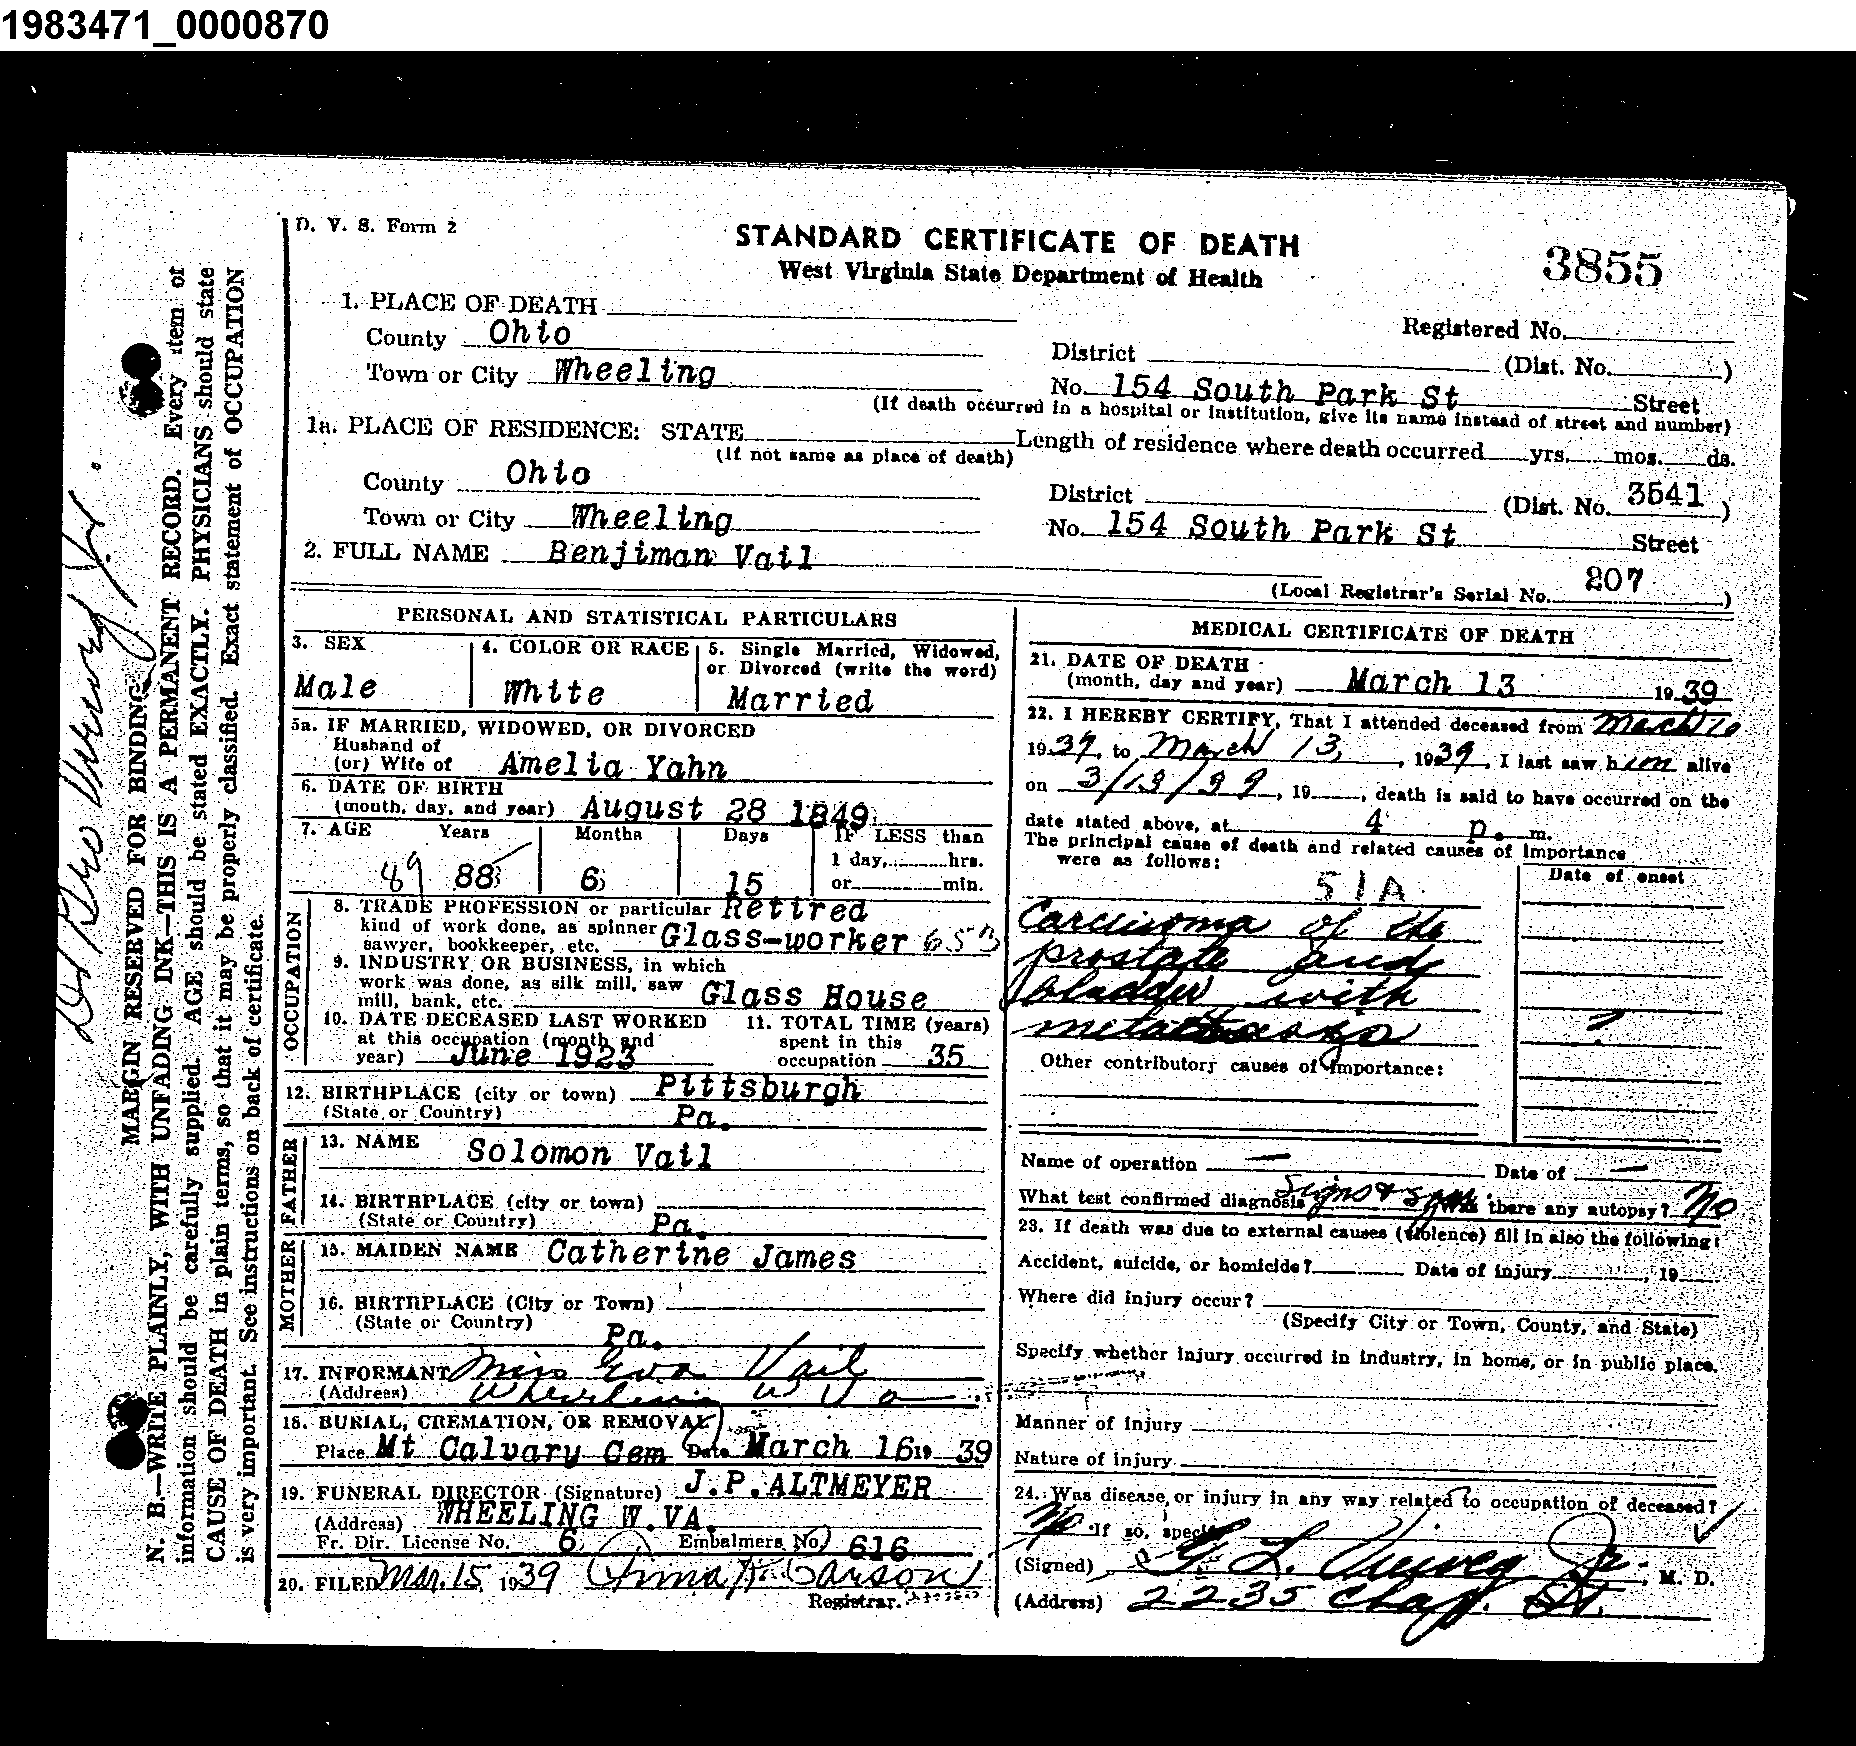 1983471_0000870
D. V. S. Form 2
STANDARD CERTIFICATE OF DEATH
West Virginia State Department of Health
3855
1. PLACE OF DEATH
Registered No.
County Ohio
District (Dist. No. )
Town or City Wheeling
No. 154 South Park St Street
(If death occurred in a hospital or institution, give its name instead of street and number)
1a. PLACE OF RESIDENCE: STATE
(If not same as place of death)
Length of residence where death occurred yrs. mos. ds.
County Ohio
District (Dist. No. 3541 )
Town or City Wheeling
No. 154 South Park St Street
2. FULL NAME Benjiman Vail
(Local Registrar's Serial No. 207 )
PERSONAL AND STATISTICAL PARTICULARS
3. SEX
Male
4. COLOR OR RACE
White
5. Single Married, Widowed,
or Divorced (write the word)
Married
5a. IF MARRIED, WIDOWED, OR DIVORCED
Husband of
(or) Wife of Amelia Yahn
6. DATE OF BIRTH
(month, day, and year) August 28 1849
7. AGE Years Months Days IF LESS than
1 day, hrs.
89 88 6 15 or min.
OCCUPATION
8. TRADE PROFESSION or particular Retired
kind of work done, as spinner
sawyer, bookkeeper, etc. Glass-worker 65B
9. INDUSTRY OR BUSINESS, in which
work was done, as silk mill, saw
mill, bank, etc. Glass House
10. DATE DECEASED LAST WORKED
at this occupation (month and
year) June 1923
11. TOTAL TIME (years)
spent in this
occupation 35
12. BIRTHPLACE (city or town) Pittsburgh
(State or Country) Pa.
FATHER
13. NAME Solomon Vail
14. BIRTHPLACE (city or town)
(State or Country) Pa.
MOTHER
15. MAIDEN NAME Catherine James
16. BIRTHPLACE (City or Town)
(State or Country)
Pa.
17. INFORMANT Miss Eva Vail
(Address) Wheeling W Va
18. BURIAL, CREMATION, OR REMOVAL
Place Mt Calvary Cem Date March 16 19 39
19. FUNERAL DIRECTOR (Signature) J.P.ALTMEYER
(Address) WHEELING W.VA.
Fr. Dir. License No. 6 Embalmers No. 616
20. FILED Mar. 15, 1939 Anna Carson
Registrar.
MEDICAL CERTIFICATE OF DEATH
21. DATE OF DEATH
(month, day and year) March 13 19 39
22. I HEREBY CERTIFY, That I attended deceased from March 10
1939, to March 13, , 1939, I last saw him alive
on 3/13/39, 19 , death is said to have occurred on the
date stated above, at 4 p. m.
The principal cause of death and related causes of importance
were as follows:
Date of onset
51A
Carcinoma of the
prostate and
bladder with
?
Other contributory causes of importance:
Name of operation — Date of —
What test confirmed diagnosis Signs & Sym. Was there any autopsy? No
23. If death was due to external causes (violence) fill in also the following:
Accident, suicide, or homicide? Date of injury , 19
Where did injury occur?
(Specify City or Town, County, and State)
Specify whether injury occurred in industry, in home, or in public place.
Manner of injury
Nature of injury
24. Was disease or injury in any way related to occupation of deceased?
No If so, specify
(Signed) Jr. , M. D.
(Address) 2235 Chap. St.
MARGIN RESERVED FOR BINDING
N. B.—WRITE PLAINLY, WITH UNFADING INK—THIS IS A PERMANENT RECORD. Every item of
information should be carefully supplied. AGE should be stated EXACTLY. PHYSICIANS should state
CAUSE OF DEATH in plain terms, so that it may be properly classified. Exact statement of OCCUPATION
is very important. See instructions on back of certificate.